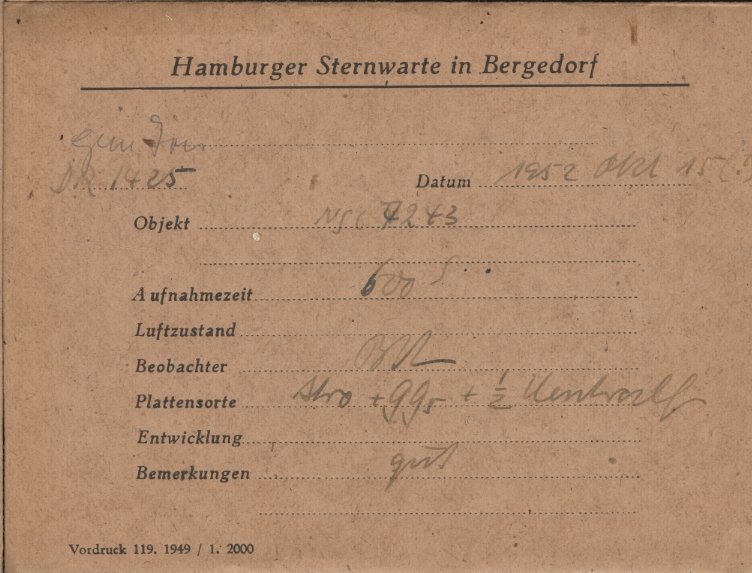 Hamburger Sternwarte in Bergedorf
1425
Datum 1952 Okt 15
Objekt NGC 7243
Aufnahmezeit 600 s
Luftzustand
Beobachter
Plattensorte + 995 + 1/2
Entwicklung
Bemerkungen gut
Vordruck 119. 1949 / 1. 2000